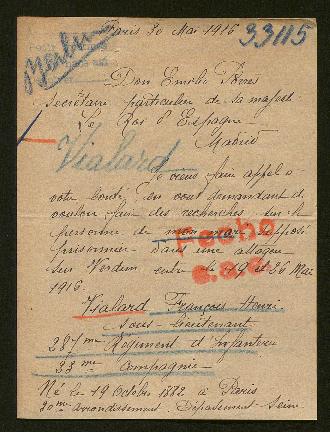 Paris 30 Mai 1916
33115
Berlin
Don Emilio Torres
Secrétaire particulier de Sa majesté
Le Roi d'Espagne
Madrid
Vialard
Je viens faire appel à
votre bonté en vous demandant de
vouloir faire des recherches sur la
personne de mon mari supposé
prisonnier dans une attaque
sur Verdun entre le 19 et 26 Mai
1916.
Fecho
Vialard François Henri
sous lieutenant
287me Régiment d'Infanterie
23me Compagnie
Né le 19 Octobre 1882 à Paris
20me arrondissement, Département Seine